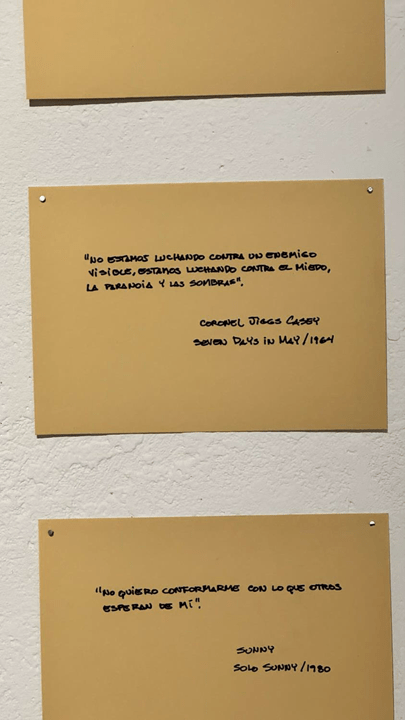 "NO ESTAMOS LUCHANDO CONTRA UN ENEMIGO
VISIBLE, ESTAMOS LUCHANDO CONTRA EL MIEDO,
LA PARANOIA Y LAS SOMBRAS".
CORONEL JIGGS CASEY
SEVEN DAYS IN MAY/1964
"NO QUIERO CONFORMARME CON LO QUE OTROS
ESPERAN DE MÍ".
SUNNY
SOLO SUNNY/1980